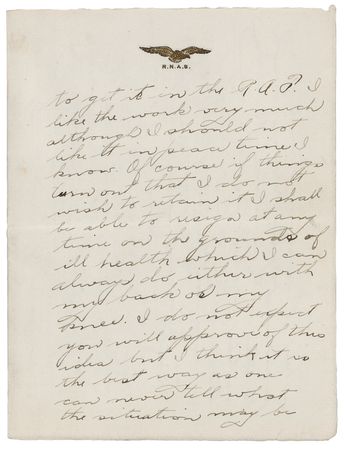 R.N.A.S.
to get it in the R.A.F. I
like the work very much
although I should not
like it in peace time I
know. Of course if things
turn out that I do not
wish to retain it I shall
be able to resign at any
time on the grounds of
ill health which I can
always do either with
my back or my
knee. I do not expect
you will approve of this
idea but I think it is
the best way as one
can never tell what
the situation may be